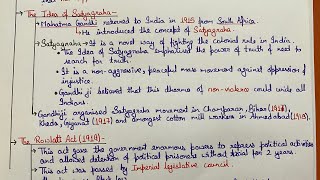 The Idea of Satyagraha -
Mahatma Gandhi returned to India in 1915 from South Africa.
He introduced the concept of Satyagraha.
Satyagraha → It is a novel way of fighting the colonial rule in India.
The Idea of Satyagraha emphasised the power of truth & need to
search for truth.
It is a non-aggressive, peaceful mass movement against oppression &
injustice.
Gandhiji believed that this dharma of non-violence could unite all
Indians.
Gandhiji organised Satyagraha movement in Champaran, Bihar (1916),
Kheda Gujarat (1917) and amongst cotton mill workers in Ahmedabad (1918).
The Rowlatt Act (1919) -
This act gave the government enormous powers to repress political activities
and allowed detention of political prisoners without trial for 2 years.
This act was passed by Imperial Legislative council.